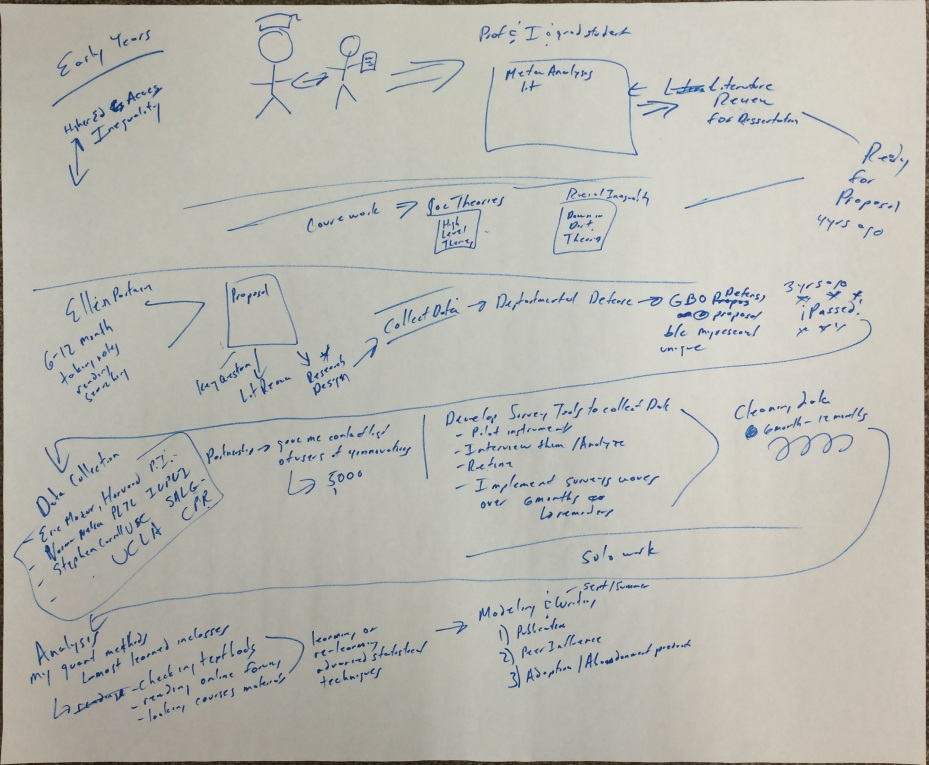 Early Years
Higher Ed Access
Inequality
Prof & I : grad student
Meta Analysis
lit
Literature
Review
for Dissertation
Ready
for
Proposal
4 yrs ago
Coursework
Soc Theories
High
Level
Theories
Racial Inequality
Down in
Dirt.
Theories
6-12 month
taking notes
reading
searching
Proposal
Key Question
Lit Review
Research
Design
Collect Data
Departmental Defense
GBO Defense
proposal
b/c my research
unique
3 yrs ago
¡Passed!
Data Collection
Eric Mazur, Harvard P.I.
PLTL IUPUI
USC SALG
UCLA CPR
Partnership gave me contact list
of users of innovations
5000
Develop Survey Tools to collect Data
- Pilot instrument
- Interview them/Analyze
- Refine
- Implement surveys waves
over 6 months
reminders
Cleaning data
6 month - 12 months
Solo work
Analysis
my quant methods
most learned in classes
- checking textbooks
- reading online forums
- looking courses materials
learning or
re-learning
advanced statistical
techniques
Modeling & Writing
- sept/summer
1) Publication
2) Peer Influence
3) Adoption / Abandonment